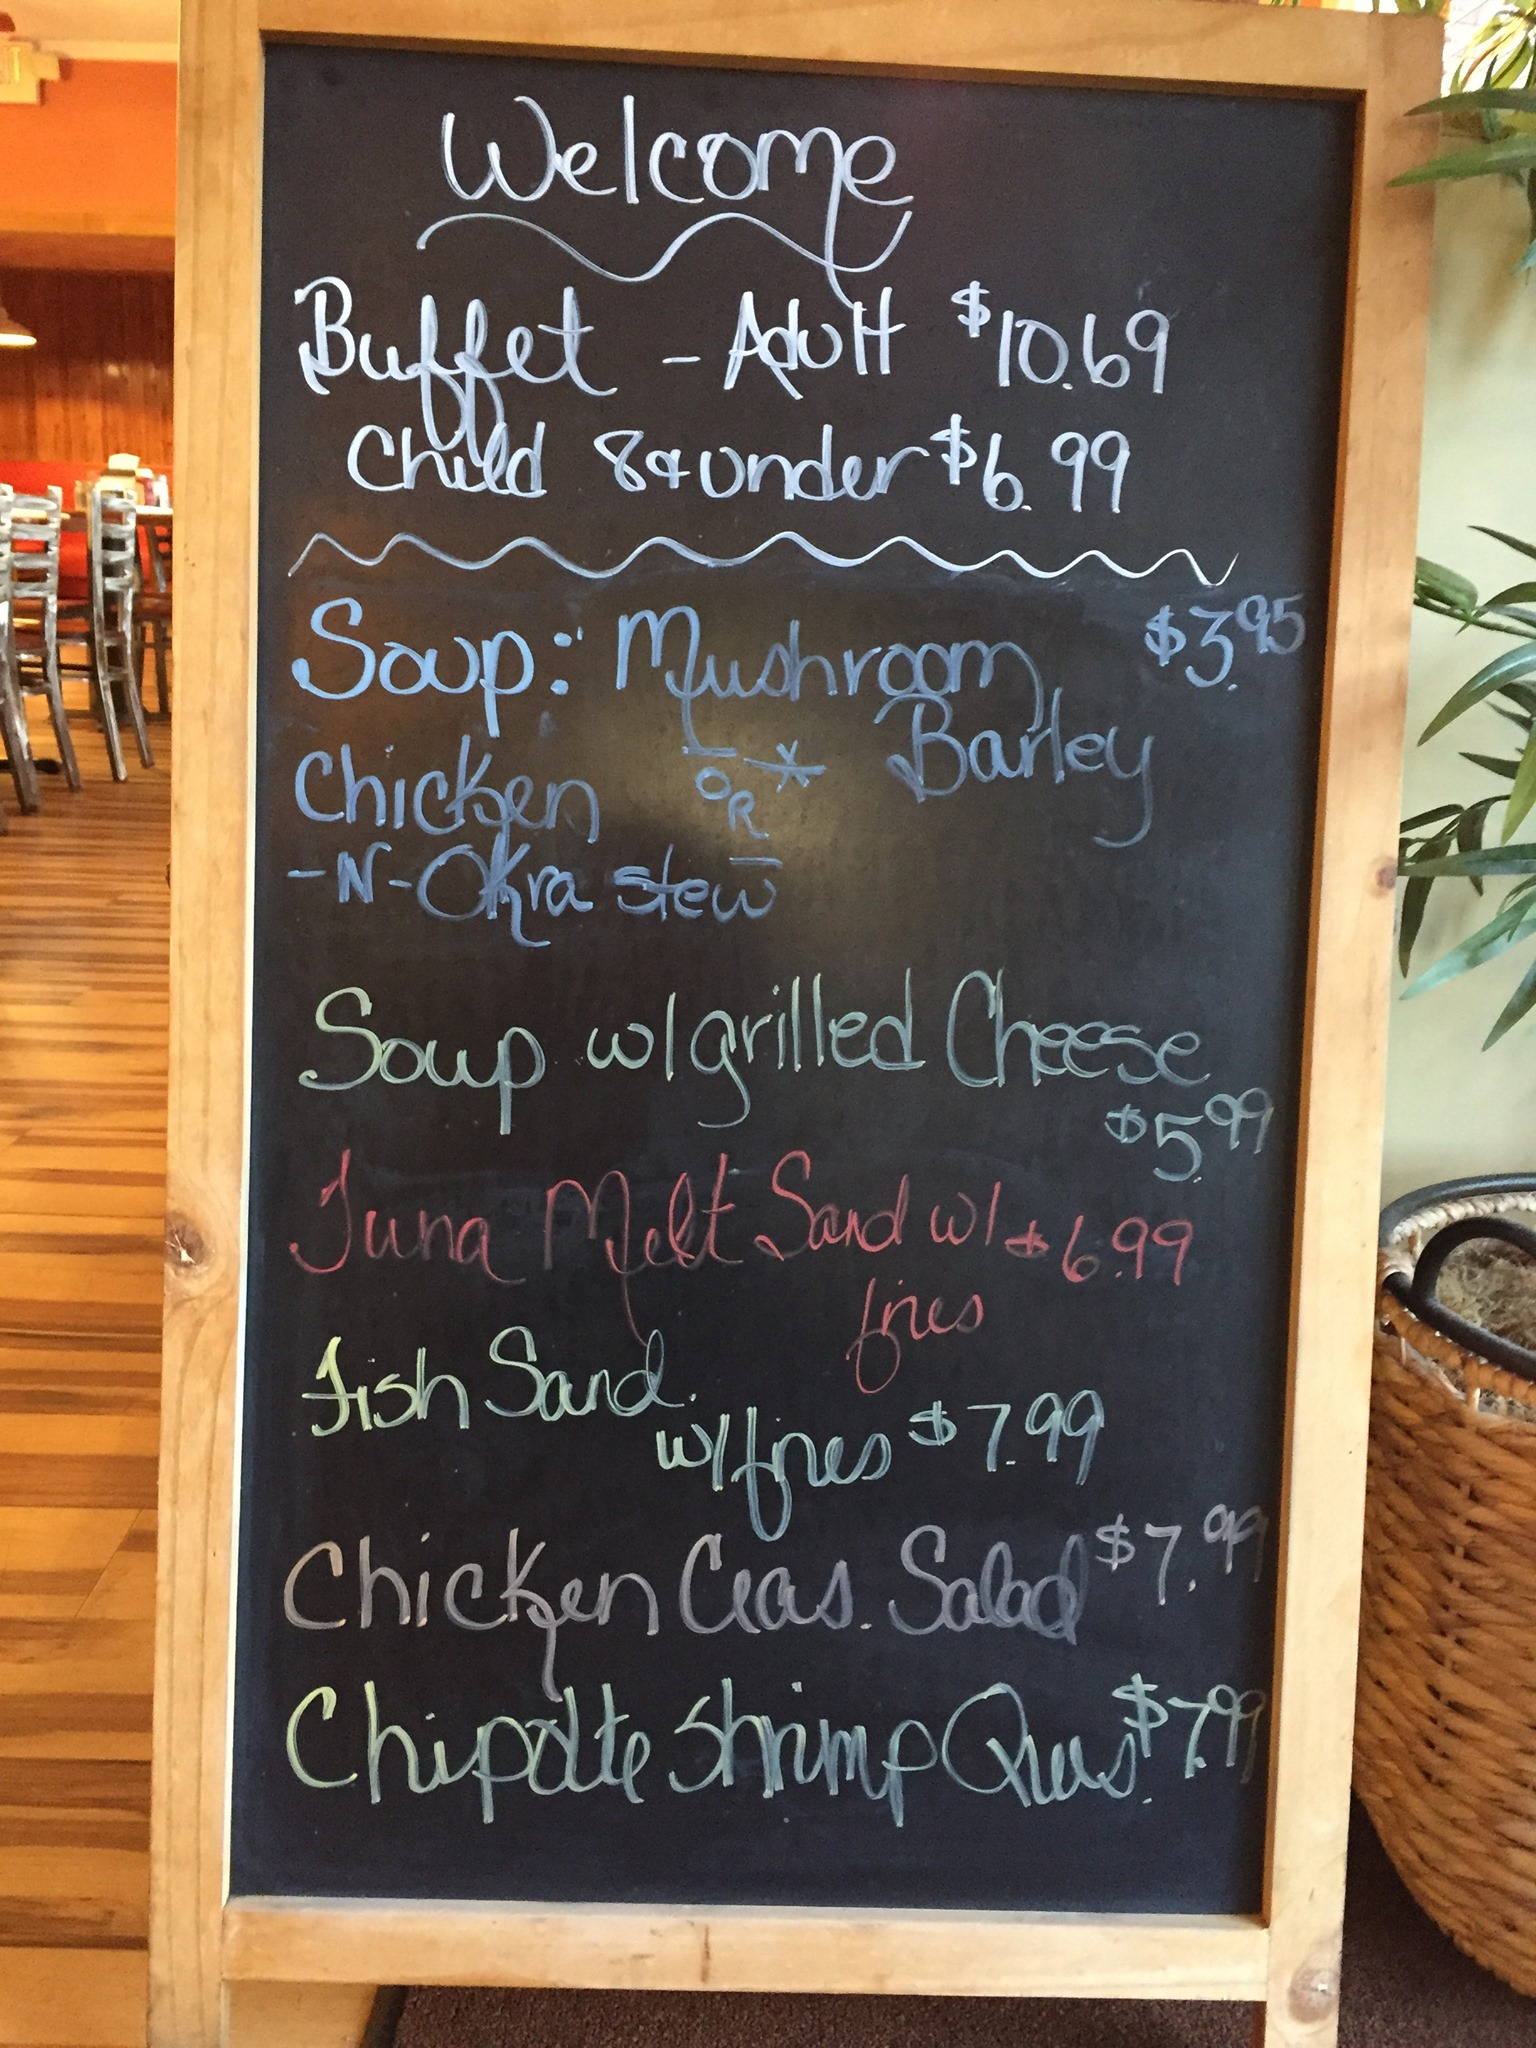 Welcome
Buffet - Adult $10.69
Child 8 & under $6.99
Soup: Mushroom $3.95
Barley
OR
Chicken
-N- Okra stew
Soup w/ grilled Cheese
$5.99
Tuna Melt Sand w/ $6.99
fries
Fish Sand.
w/ fries $7.99
Chicken Ceas. Salad $7.99
Chipolte Shrimp Ques. $7.99